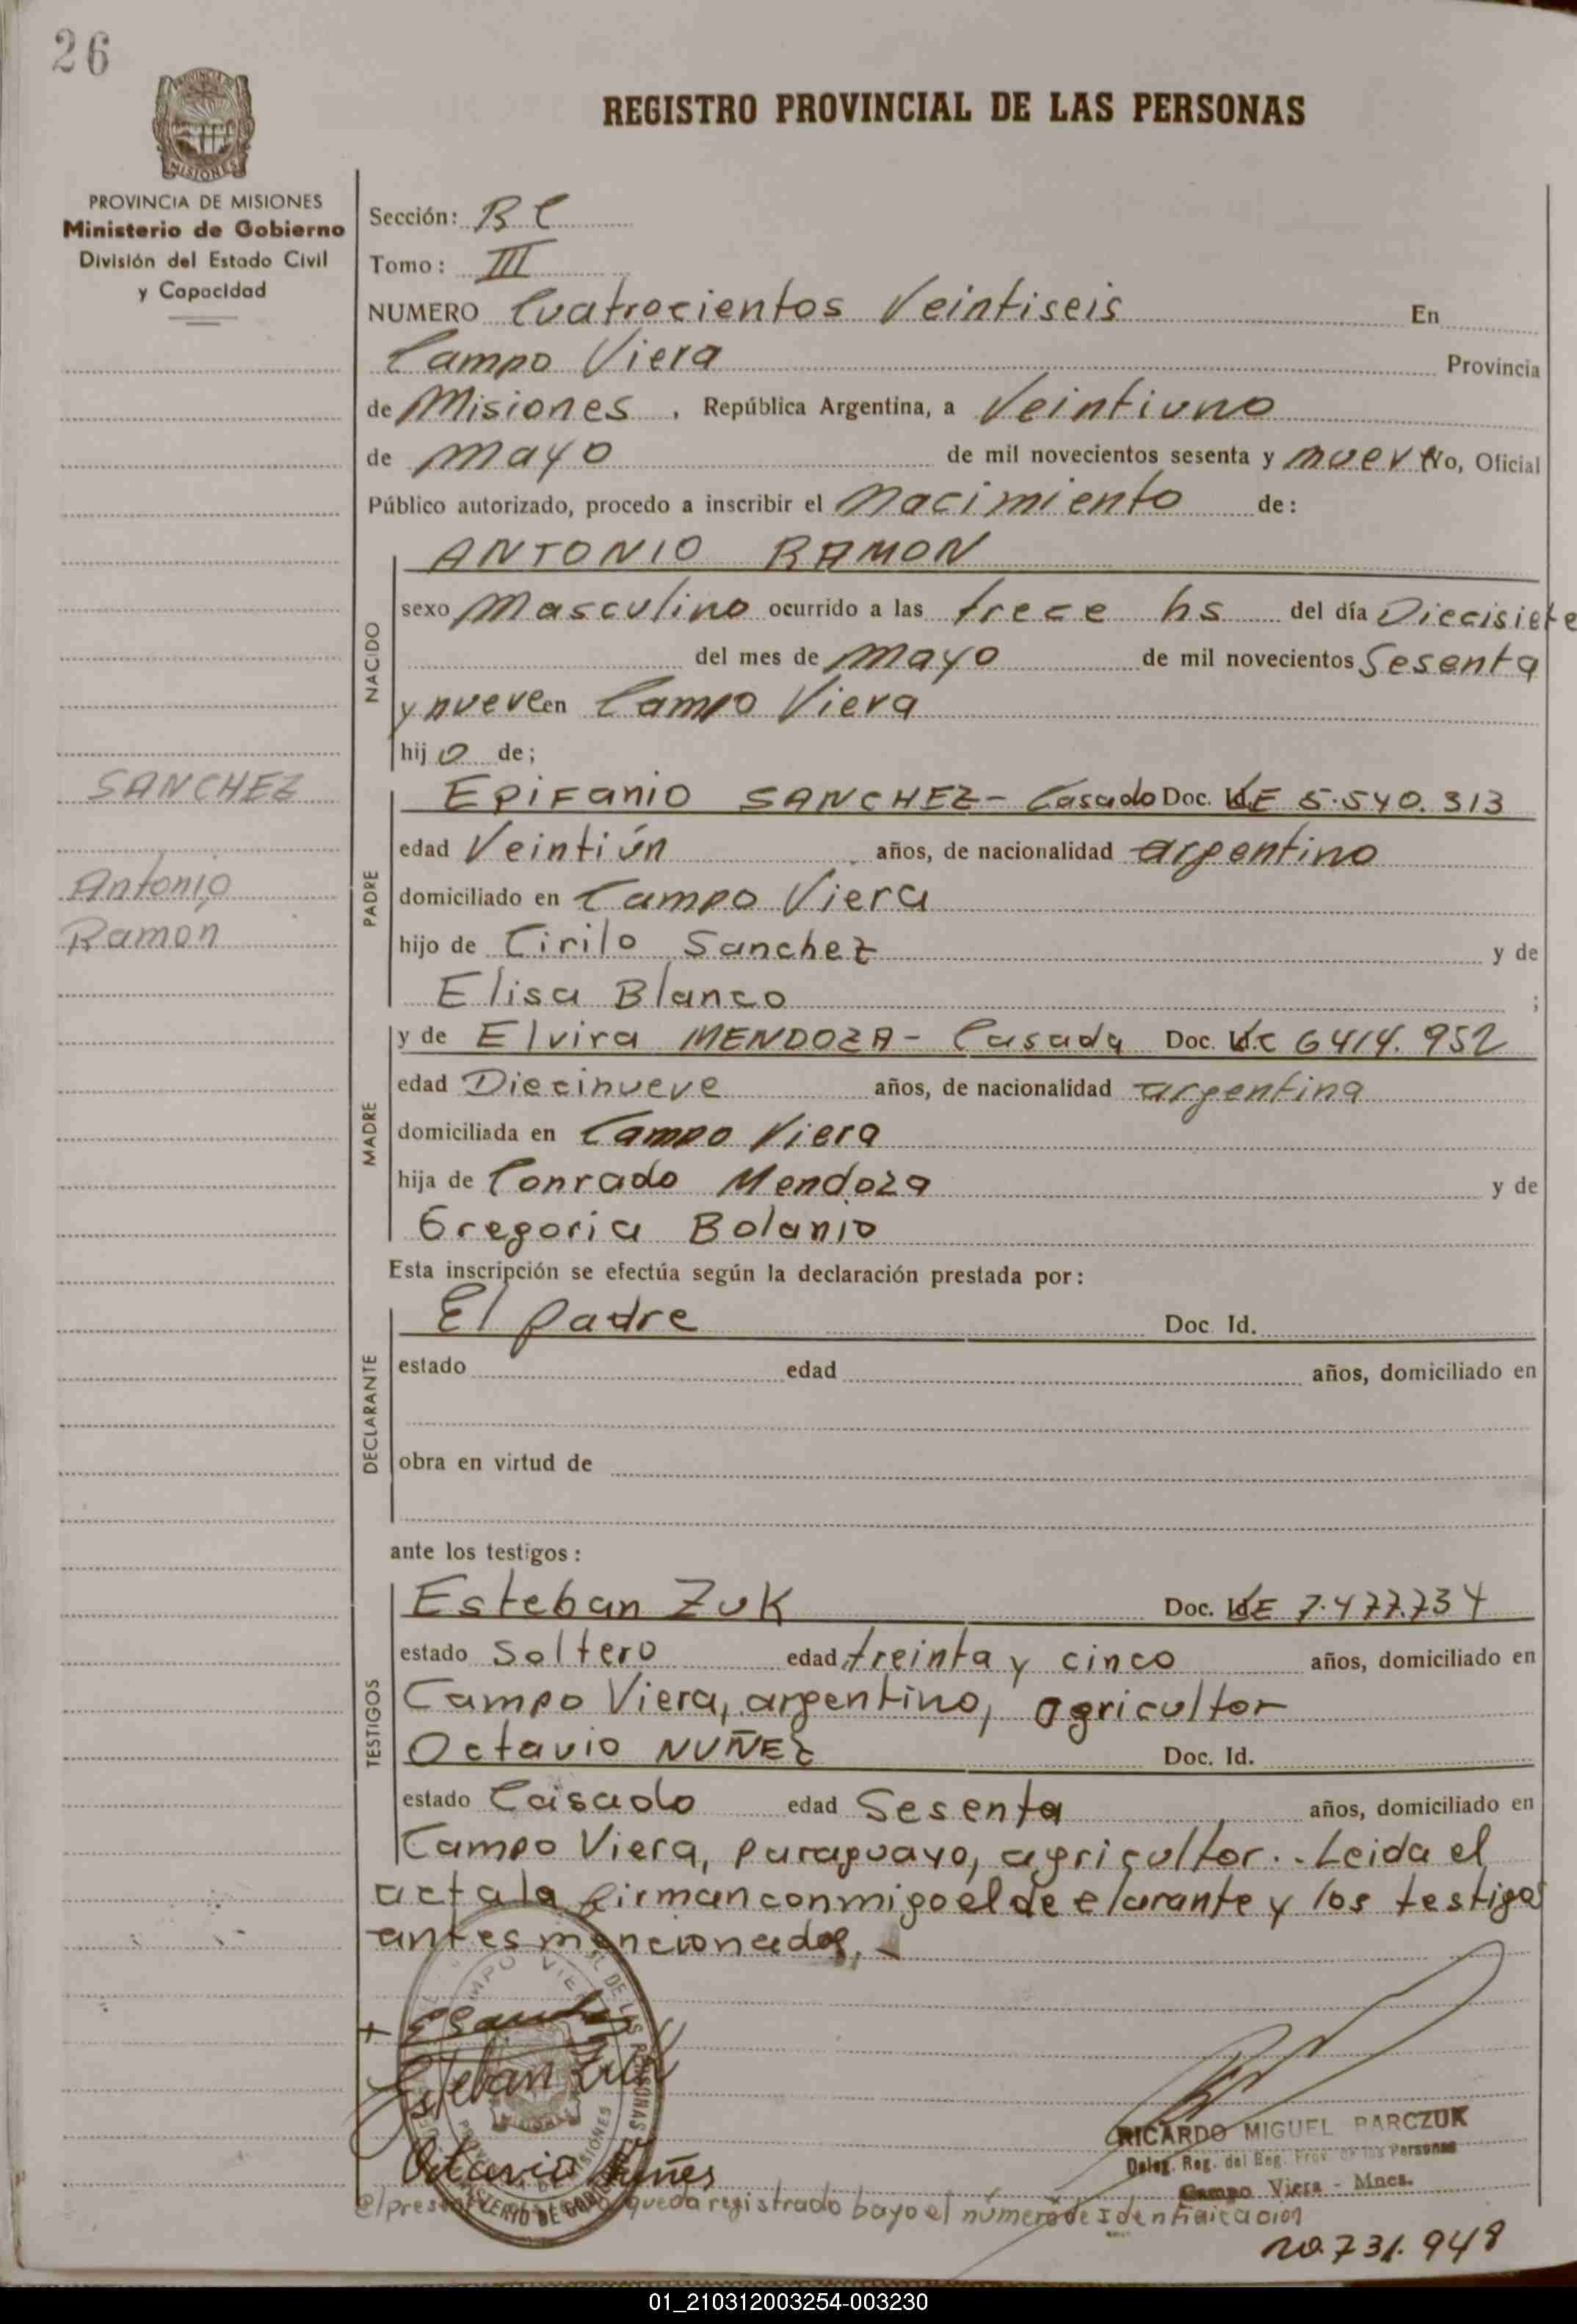 26
MISIONES
REGISTRO PROVINCIAL DE LAS PERSONAS
PROVINCIA DE MISIONES
Ministerio de Gobierno
División del Estado Civil
y Capacidad
Sección: B C
Tomo: III
NUMERO Cuatrocientos Veintiseis En
Campo Viera Provincia
de Misiones, República Argentina, a Veintiuno
de Mayo de mil novecientos sesenta y nueve Yo, Oficial
Público autorizado, procedo a inscribir el Nacimiento de:
NACIDO
ANTONIO RAMON
sexo Masculino ocurrido a las trece hs del día Diecisiete
del mes de Mayo de mil novecientos Sesenta
y nueve en Campo Viera
hijo de;
SANCHEZ
Antonio
Ramon
PADRE
Epifanio SANCHEZ - Casado Doc. Id. LE 5.540.313
edad Veintiún años, de nacionalidad argentino
domiciliado en Campo Viera
hijo de Cirilo Sanchez y de
Elisa Blanco ;
MADRE
y de Elvira MENDOZA - Casada Doc. Id. LC 6414.952
edad Diecinueve años, de nacionalidad argentina
domiciliada en Campo Viera
hija de Conrado Mendoza y de
Gregoria Bolanio
Esta inscripción se efectúa según la declaración prestada por:
DECLARANTE
El padre Doc. Id.
estado edad años, domiciliado en
obra en virtud de
ante los testigos:
TESTIGOS
Esteban Zuk Doc. Id. LE 7.477.734
estado Soltero edad treinta y cinco años, domiciliado en
Campo Viera, argentino, agricultor
Octavio NUÑEZ Doc. Id.
estado Casado edad Sesenta años, domiciliado en
Campo Viera, paraguayo, agricultor.- Leida el
acta la firman conmigo el declarante y los testigos
antes mencionados,-
Esteban Zuk
Octavio Nuñes
RICARDO MIGUEL BARCZUK
Deleg. Reg. del Reg. Prov. de las Personas
Campo Viera - Mnes.
El queda registrado bayo el número de Identificacion
20.731.948
01_210312003254-003230